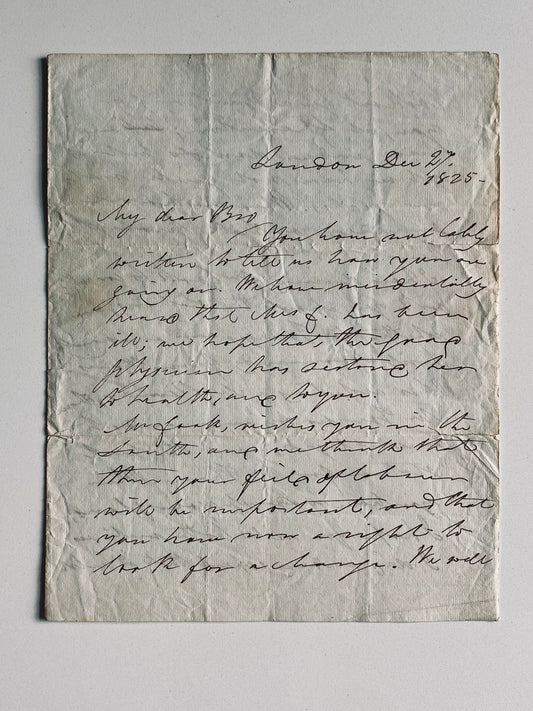 London Dec 27.
1825-
My dear Bro
You have not lately
written to tell us how you are
going on. We have incidentally
heard that Mrs J. has been
ill; we hope that the great
physician has restored her
to health, and to you.
Mr Cook, wishes you in the
South, and we think that
there your field of labour
will be important, and that
you have now a right to
look for a change. We will